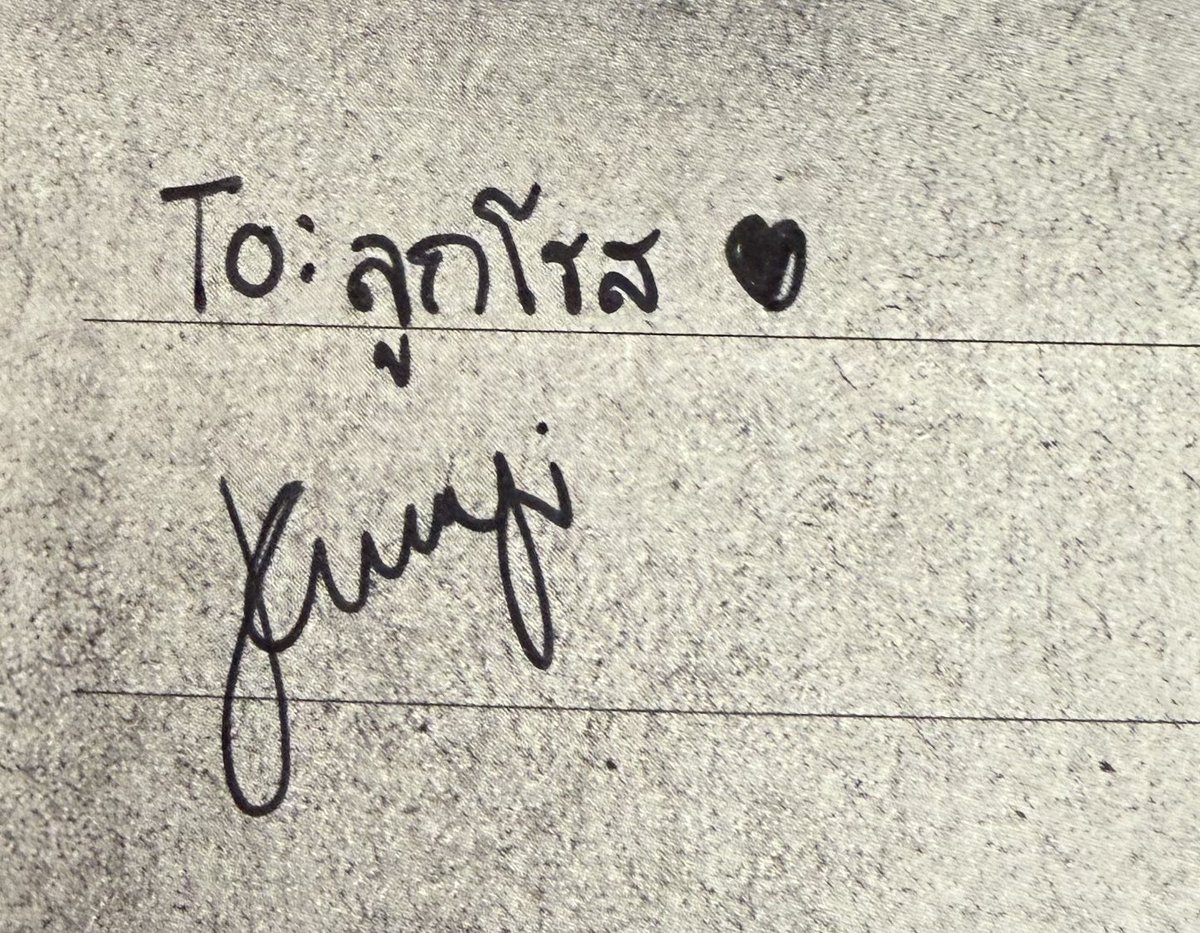 To: ลูกโรส ♥